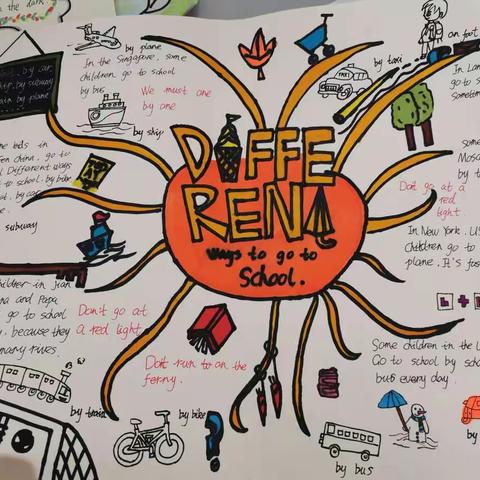 the dark.
by plane
In the Singapore, some
children go to school
by bus
We must one
by one
by ship
by taxi
TAXI
on foot
by car
by subway
by plane
DIFFERENT
ways to go to
School.
In
go to sch
Sometim
Some
Mosc
by t
Don't go at a
red
light.
In New York. US
Children go to
plane. It's fas
kids in
china. go to
Different ways
to school. by bike
by car
subway
children in Jian
and Papa
go to school
because they
many rives.
Don't go at
a red light.
Don't run to on the
ferry.
Some children in the U
Go to school by scho
bus every day.
by train
by bike
by bus
by